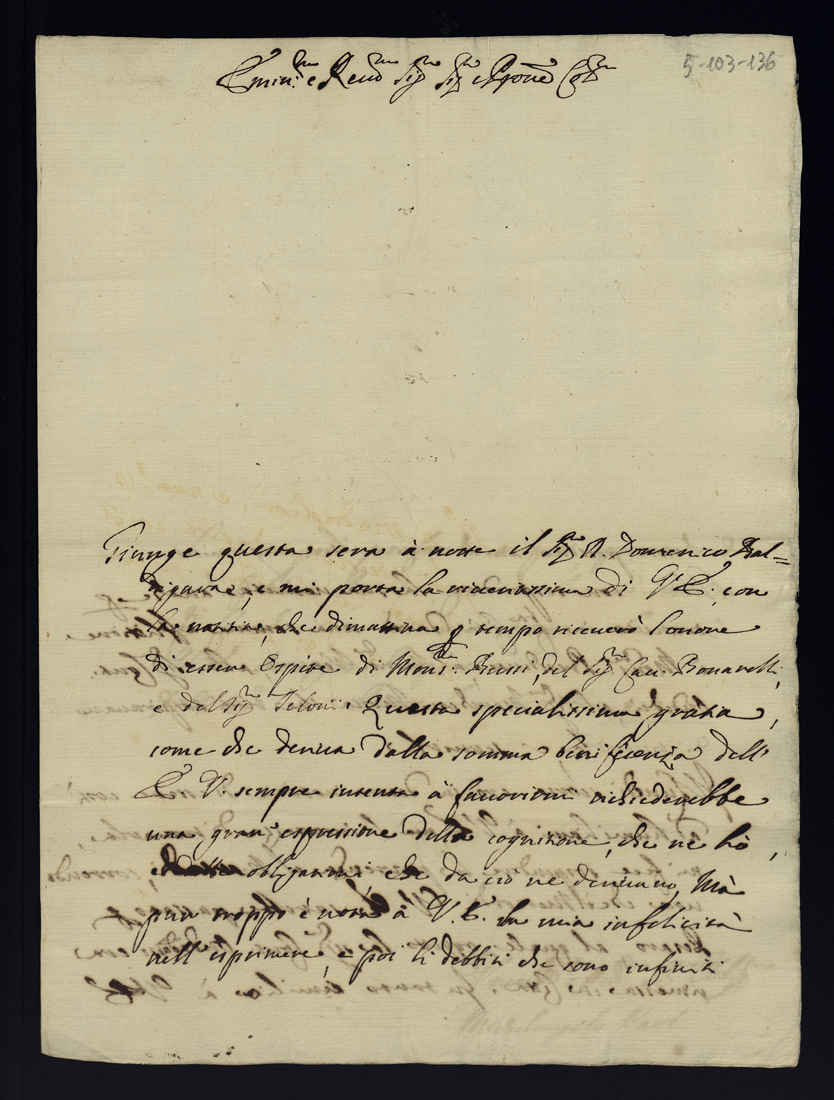 5-103-136
Emin.mo e Rev.mo Sig.r Sig.r e Prone Col.mo
Giunge questa sera à notte il Sig.r D. Domenico Bal=
digara, e mi porta la riveritissima di V. E. con
la notitia, che dimattina p tempo riceverò l'onore
di essere Ospite di Mons.r Bussi, del Sig.r Cav. Bonarelli,
e del Sig.r Questa specialissima gratia,
come che deriva dalla somma beneficenza dell'
E. V. sempre intenta à favorirmi richiederebbe
una gran espressione della cognitione, che ne hò,
e obligationi, che da ciò ne derivano, Mà
pur troppo è nota à V. E. la mia infelicità
nell'esprimere, e poi li debbiti che sono infiniti